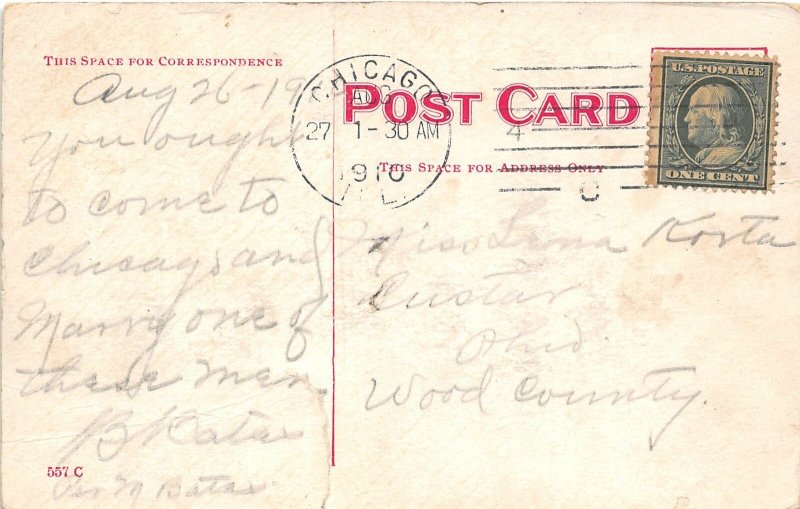 THIS SPACE FOR CORRESPONDENCE
Aug 26-19
You ought
to come to
Chicago and
Marry one of
these men.
557 C
CHICAGO
AUG
27 1-30 AM
1910
ILL.
POST CARD
THIS SPACE FOR ADDRESS ONLY
4
U.S. POSTAGE
ONE CENT
Miss Lena Korta
Custar
Ohio
Wood County.